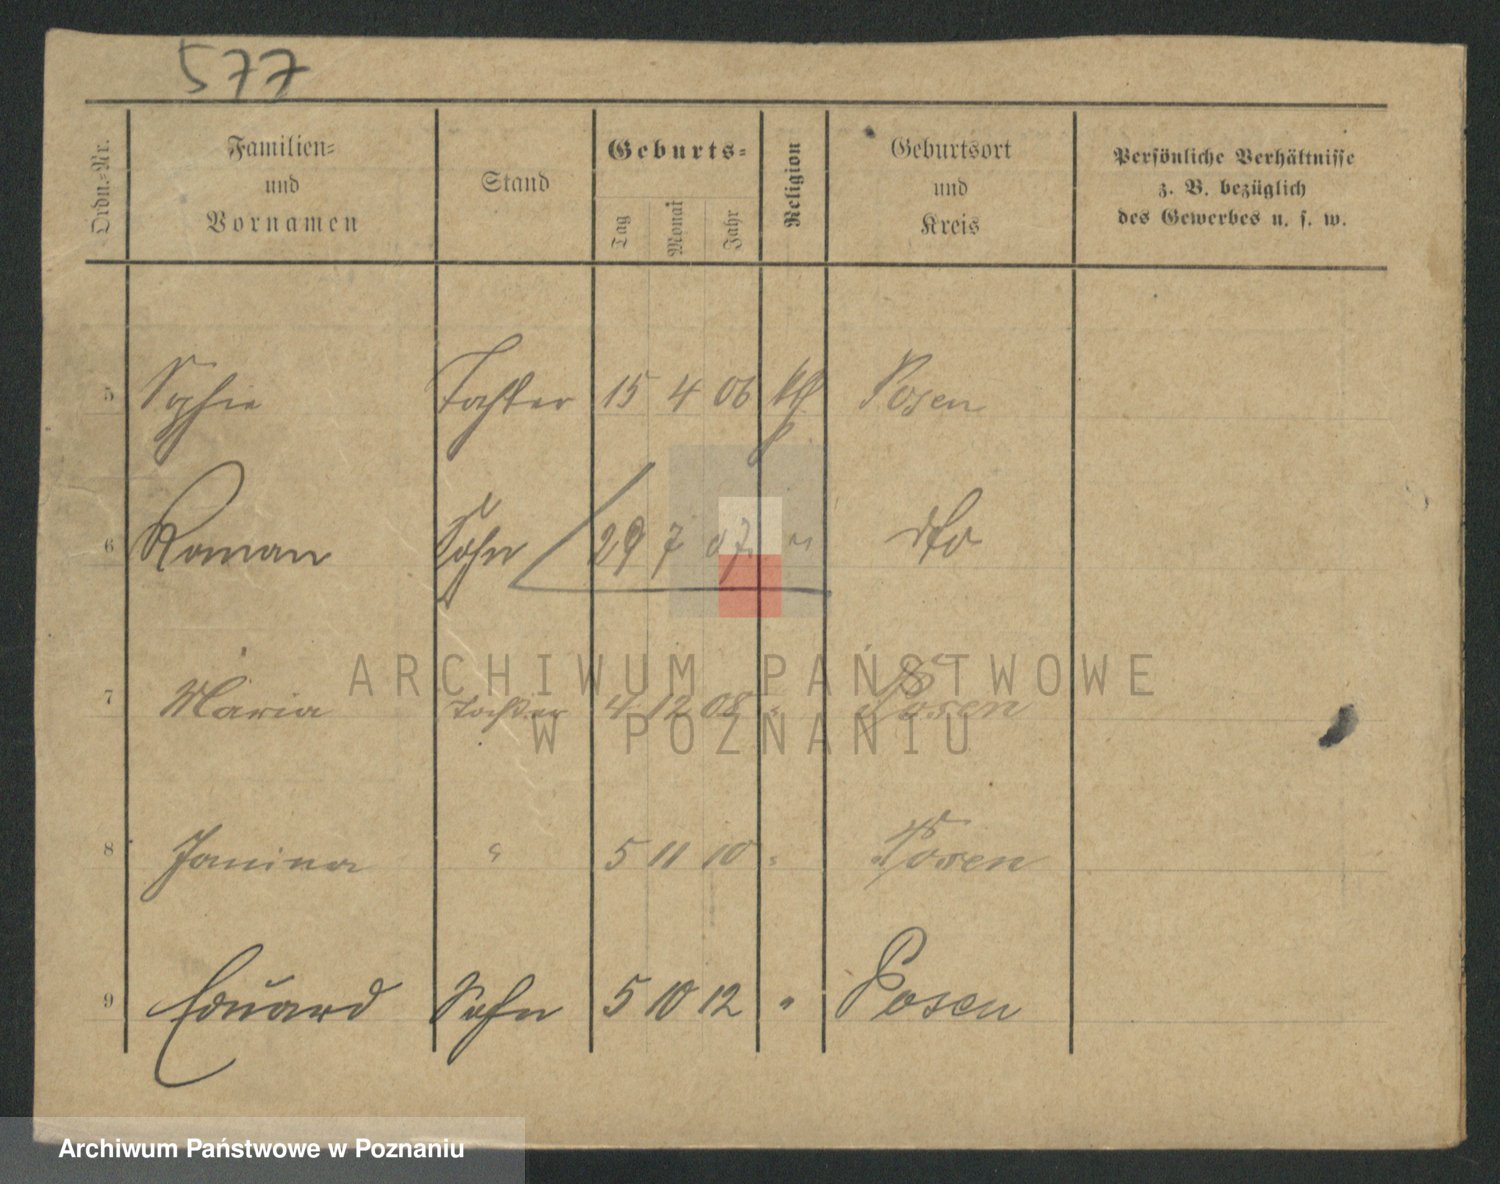 577
Ordn.-Nr.
Familien-
und
Vornamen
Stand
Geburts-
Tag
Monat
Jahr
Religion
Geburtsort
und
Kreis
Persönliche Verhältnisse
z. B. bezüglich
des Gewerbes u. s. w.
5 Sophie Tochter 15 4 06 kth Posen
6 Roman Sohn 29 7 07 " dto
7 Maria Tochter 4 12 08 " Posen
8 Janina " 5 11 10 " Posen
9 Eduard Sohn 5 10 12 " Posen
ARCHIWUM PAŃSTWOWE
W POZNANIU
Archiwum Państwowe w Poznaniu